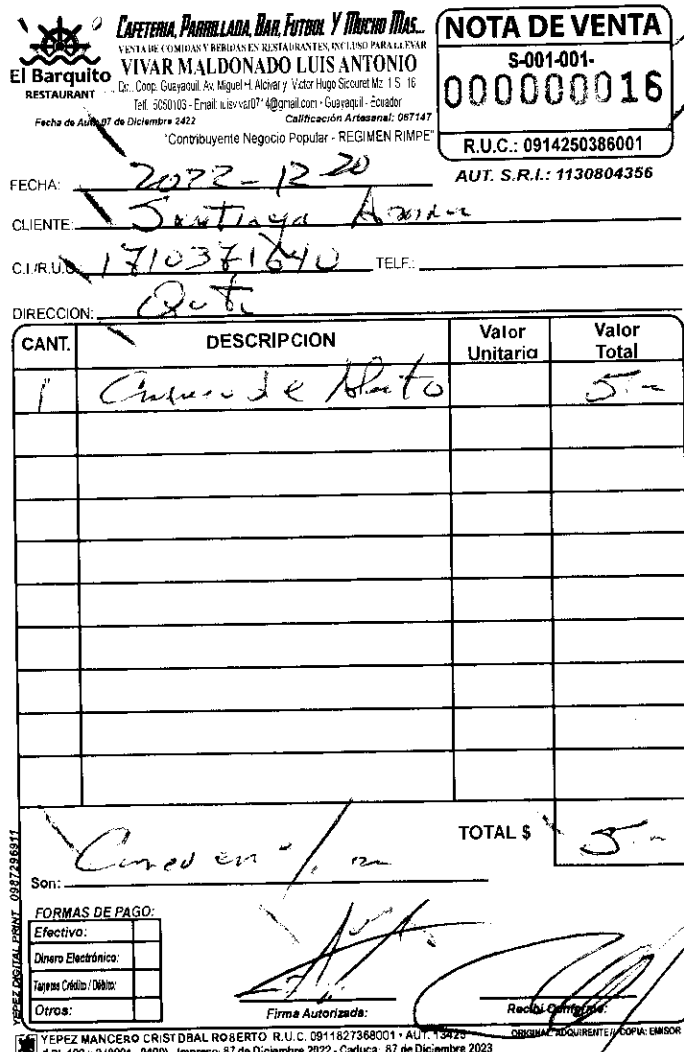 CAFETERIA, PARRILLADA, BAR, FUTBOL Y MUCHO MAS...
VENTA DE COMIDAS Y BEBIDAS EN RESTAURANTES, INCLUSO PARA LLEVAR
El Barquito
RESTAURANT
VIVAR MALDONADO LUIS ANTONIO
Dir.: Coop. Guayaquil, Av. Miguel H. Alcivar y Victor Hugo Sicouret Mz. 1 S. 16
Telf. 5050103 - Email: luisvivar0714@gmail.com - Guayaquil - Ecuador
Fecha de Aut. 07 de Diciembre 2422 Calificación Artesanal: 067147
"Contribuyente Negocio Popular - REGIMEN RIMPE"
NOTA DE VENTA
S-001-001-
000000016
R.U.C.: 0914250386001
AUT. S.R.I.: 1130804356
FECHA: 2022-12-20
CLIENTE: Santiago
C.I./R.U.C. 1710371640 TELF.:
DIRECCION: Quito
CANT. DESCRIPCION Valor Unitario Valor Total
1 de 5.-
TOTAL $ 5.-
Son: Cinco en
FORMAS DE PAGO:
Efectivo:
Dinero Electrónico:
Tarjetas Crédito / Débito:
Otros:
Firma Autorizada:
Recibí Conforme:
YEPEZ DIGITAL PRINT 0987296911
YEPEZ MANCERO CRISTOBAL ROBERTO R.U.C. 0911827368001 • AUT. 13425
ORIGINAL: ADQUIRENTE // COPIA: EMISOR
Impreso: 87 de Diciembre 2022 - Caduca: 87 de Diciembre 2023